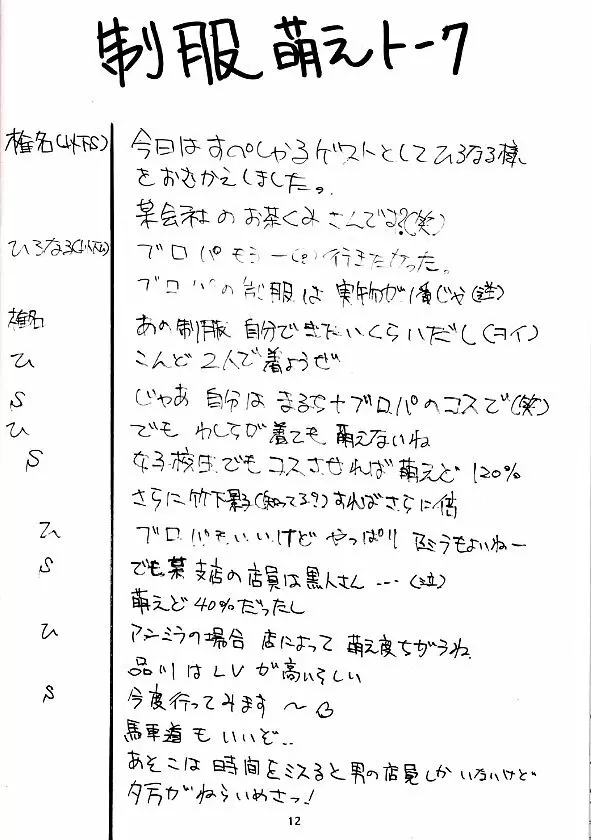 制服 萌えトーク
椎名(以下S) 今日は すぺしゃるゲストとして ひろなる様
をおむかえしました。
某会社の お茶くみさんです?(笑)
ひろなる(以下ひ) ブロパ もう一(?)行きたかった。
ブロパの制服は 実物が1番じゃ(謎)
椎名 あの制服 自分できたいくらいだし(ヨイ)
ひ こんど 2人で着ようぜ
S じゃあ 自分は まるち+ブロパのコスで(笑)
ひ でも わしらが着ても 萌えないね
S 女子校生でもコスさせれば萌えど 120%
さらに竹下 (知ってる?)すればさらに倍
ひ ブロパもいいけど やっぱり アンミラもよいねー
S でも某 支店の店員は黒人さん ---(泣)
萌えど 40%だったし
ひ アンミラの場合 店によって 萌え度ちがうね
品川は LV が高いらしい
S 今度行ってみます ~
馬車道も いいぞ..
あそこは 時間をミスると男の店員しか いないけど
夕方がねらいめさっ!
12